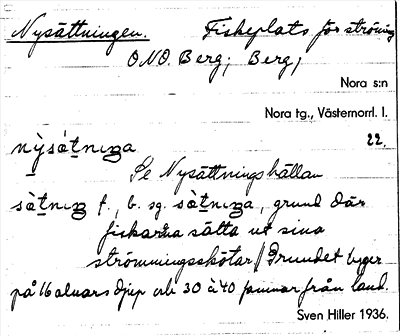 Nysättningen. Fiskeplats för strömming
ONO. Berg; Berg,
Nora s:n
Nora tg., Västernorrl. l.
22.
nỳsátnıŋa
Se Nysättningshällan
sàtnıŋ f., b. sg. sàtnıŋa, grund där
fiskarna sätta ut sina
strömmingsskötar // Grundet ligger
på 16 alnars djup och 30 à 40 famnar från land.
Sven Hiller 1936.